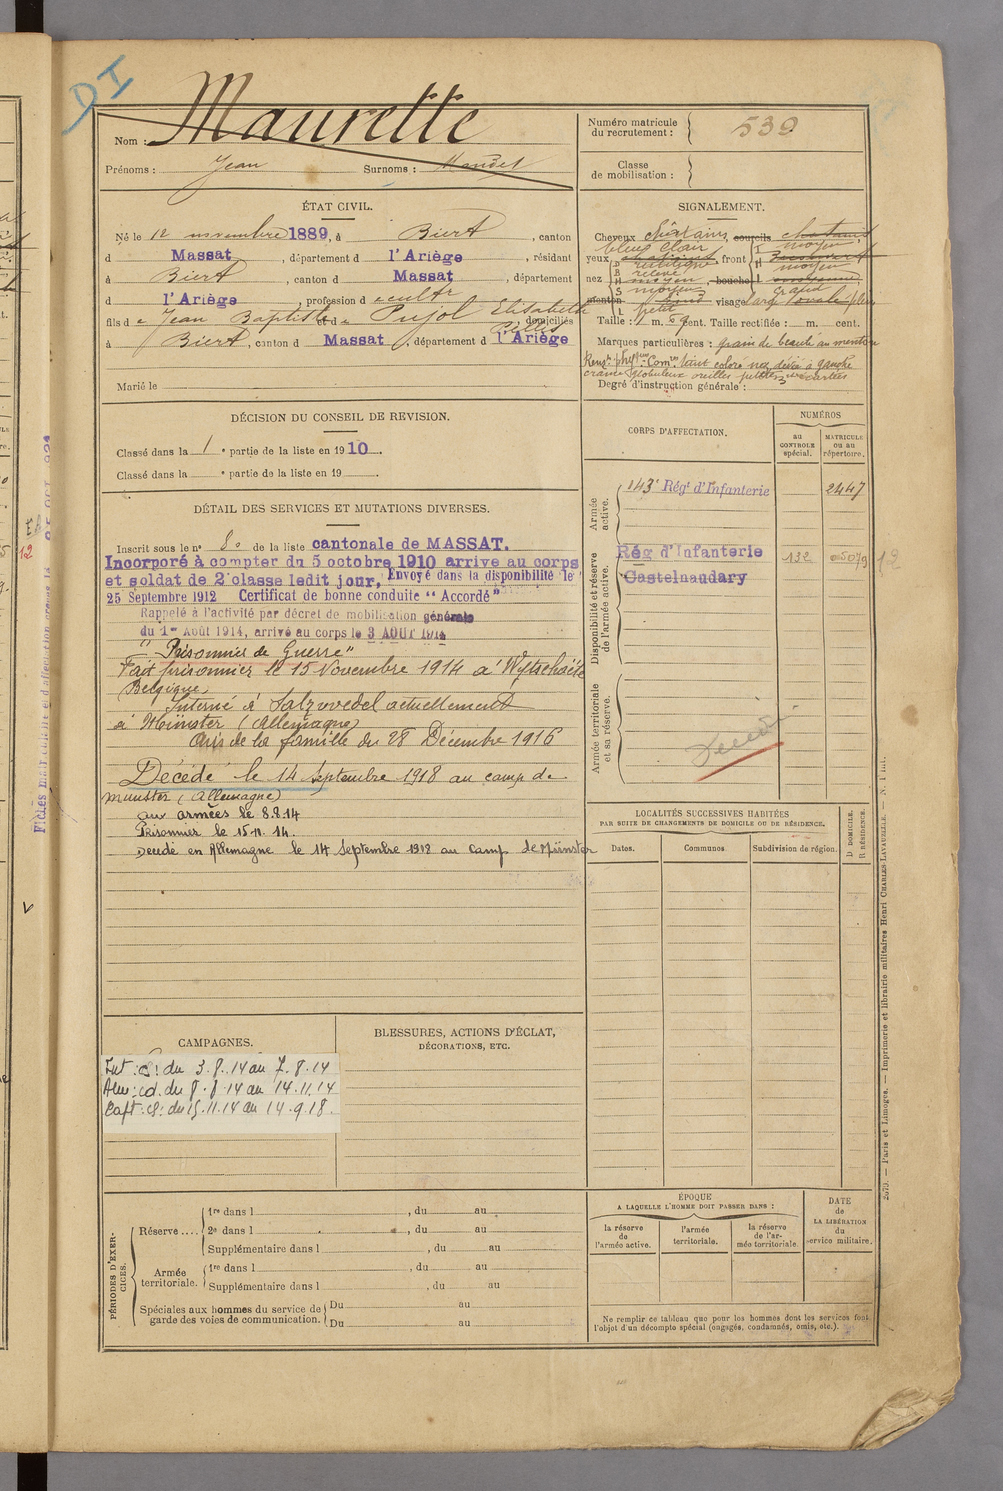 DI
Nom : Maurette
Prénoms : Jean Surnoms :
Numéro matricule du recrutement : 539
Classe de mobilisation :
ÉTAT CIVIL.
Né le 12 novembre 1889, à Biert, canton
d Massat, département d l'Ariège, résidant
à Biert, canton d Massat, département
d l'Ariège, profession d cultr
fils d e Jean Baptiste et d e Pujol Elisabeth domiciliés
à Biert, canton d Massat, département d l'Ariège
Marié le
SIGNALEMENT.
Cheveux châtains, sourcils châtains
yeux bleus clair, front moyen
nez rectiligne, bouche moyenne
relevé
moyen
menton rond visage large ovale plein
petit
Taille : 1 m. 69 cent. Taille rectifiée : m. cent.
Marques particulières : grain de beauté au menton
Rensts physques Comres teint coloré nez dévié à gauche
crâne globuleux oreilles petites écartées
Degré d'instruction générale : 3
DÉCISION DU CONSEIL DE REVISION.
Classé dans la 1e partie de la liste en 1910.
Classé dans la e partie de la liste en 19
DÉTAIL DES SERVICES ET MUTATIONS DIVERSES.
Inscrit sous le n° 80 de la liste cantonale de MASSAT.
Incorporé à compter du 5 octobre 1910 arrive au corps
et soldat de 2e classe ledit jour, Envoyé dans la disponibilité le
25 Septembre 1912 Certificat de bonne conduite "Accordé"
Rappelé à l'activité par décret de mobilisation générale
du 1er Août 1914, arrivé au corps le 3 AOUT 1914
"Prisonnier de Guerre"
Fait prisonnier le 15 Novembre 1914 à Wytschaëte
Belgique
Interné à Salzwedel actuellement
à Münster (Allemagne)
Avis de la famille du 28 Décembre 1916
Décédé le 14 Septembre 1918 au camp de
Munster (Allemagne)
aux armées le 8.8.14
Prisonnier le 15.11.14.
Décédé en Allemagne le 14 Septembre 1918 au camp de Münster
CORPS D'AFFECTATION.
NUMÉROS
au CONTROLE spécial.
MATRICULE ou au répertoire.
Armée active.
143e Régt d'Infanterie 2447
Disponibilité et réserve de l'armée active.
Rég d'Infanterie 132 05079 12
Castelnaudary
Armée territoriale et sa réserve.
Décédé
LOCALITÉS SUCCESSIVES HABITÉES
PAR SUITE DE CHANGEMENTS DE DOMICILE OU DE RÉSIDENCE.
Dates. Communes. Subdivision de région. D DOMICILE. R RÉSIDENCE.
CAMPAGNES.
Int : S : du 3.8.14 au 7.8.14
Alle : cd. du 8.8.14 au 14.11.14
Capt : S : du 15.11.14 au 14.9.18.
BLESSURES, ACTIONS D'ÉCLAT,
DÉCORATIONS, ETC.
PÉRIODES D'EXERCICES.
Réserve .... 1re dans l , du au
2e dans l , du au
Supplémentaire dans l , du au
Armée territoriale. 1re dans l , du au
Supplémentaire dans l , du au
Spéciales aux hommes du service de garde des voies de communication. Du au
Du au
ÉPOQUE
A LAQUELLE L'HOMME DOIT PASSER DANS :
la réserve de l'armée active.
l'armée territoriale.
la réserve de l'armée territoriale.
DATE de LA LIBÉRATION du service militaire.
Ne remplir ce tableau que pour les hommes dont les services font
l'objet d'un décompte spécial (engagés, condamnés, omis, etc.).
2079. — Paris et Limoges. — Imprimerie et librairie militaires Henri CHARLES-LAVAUZELLE. — N. 1 bis.